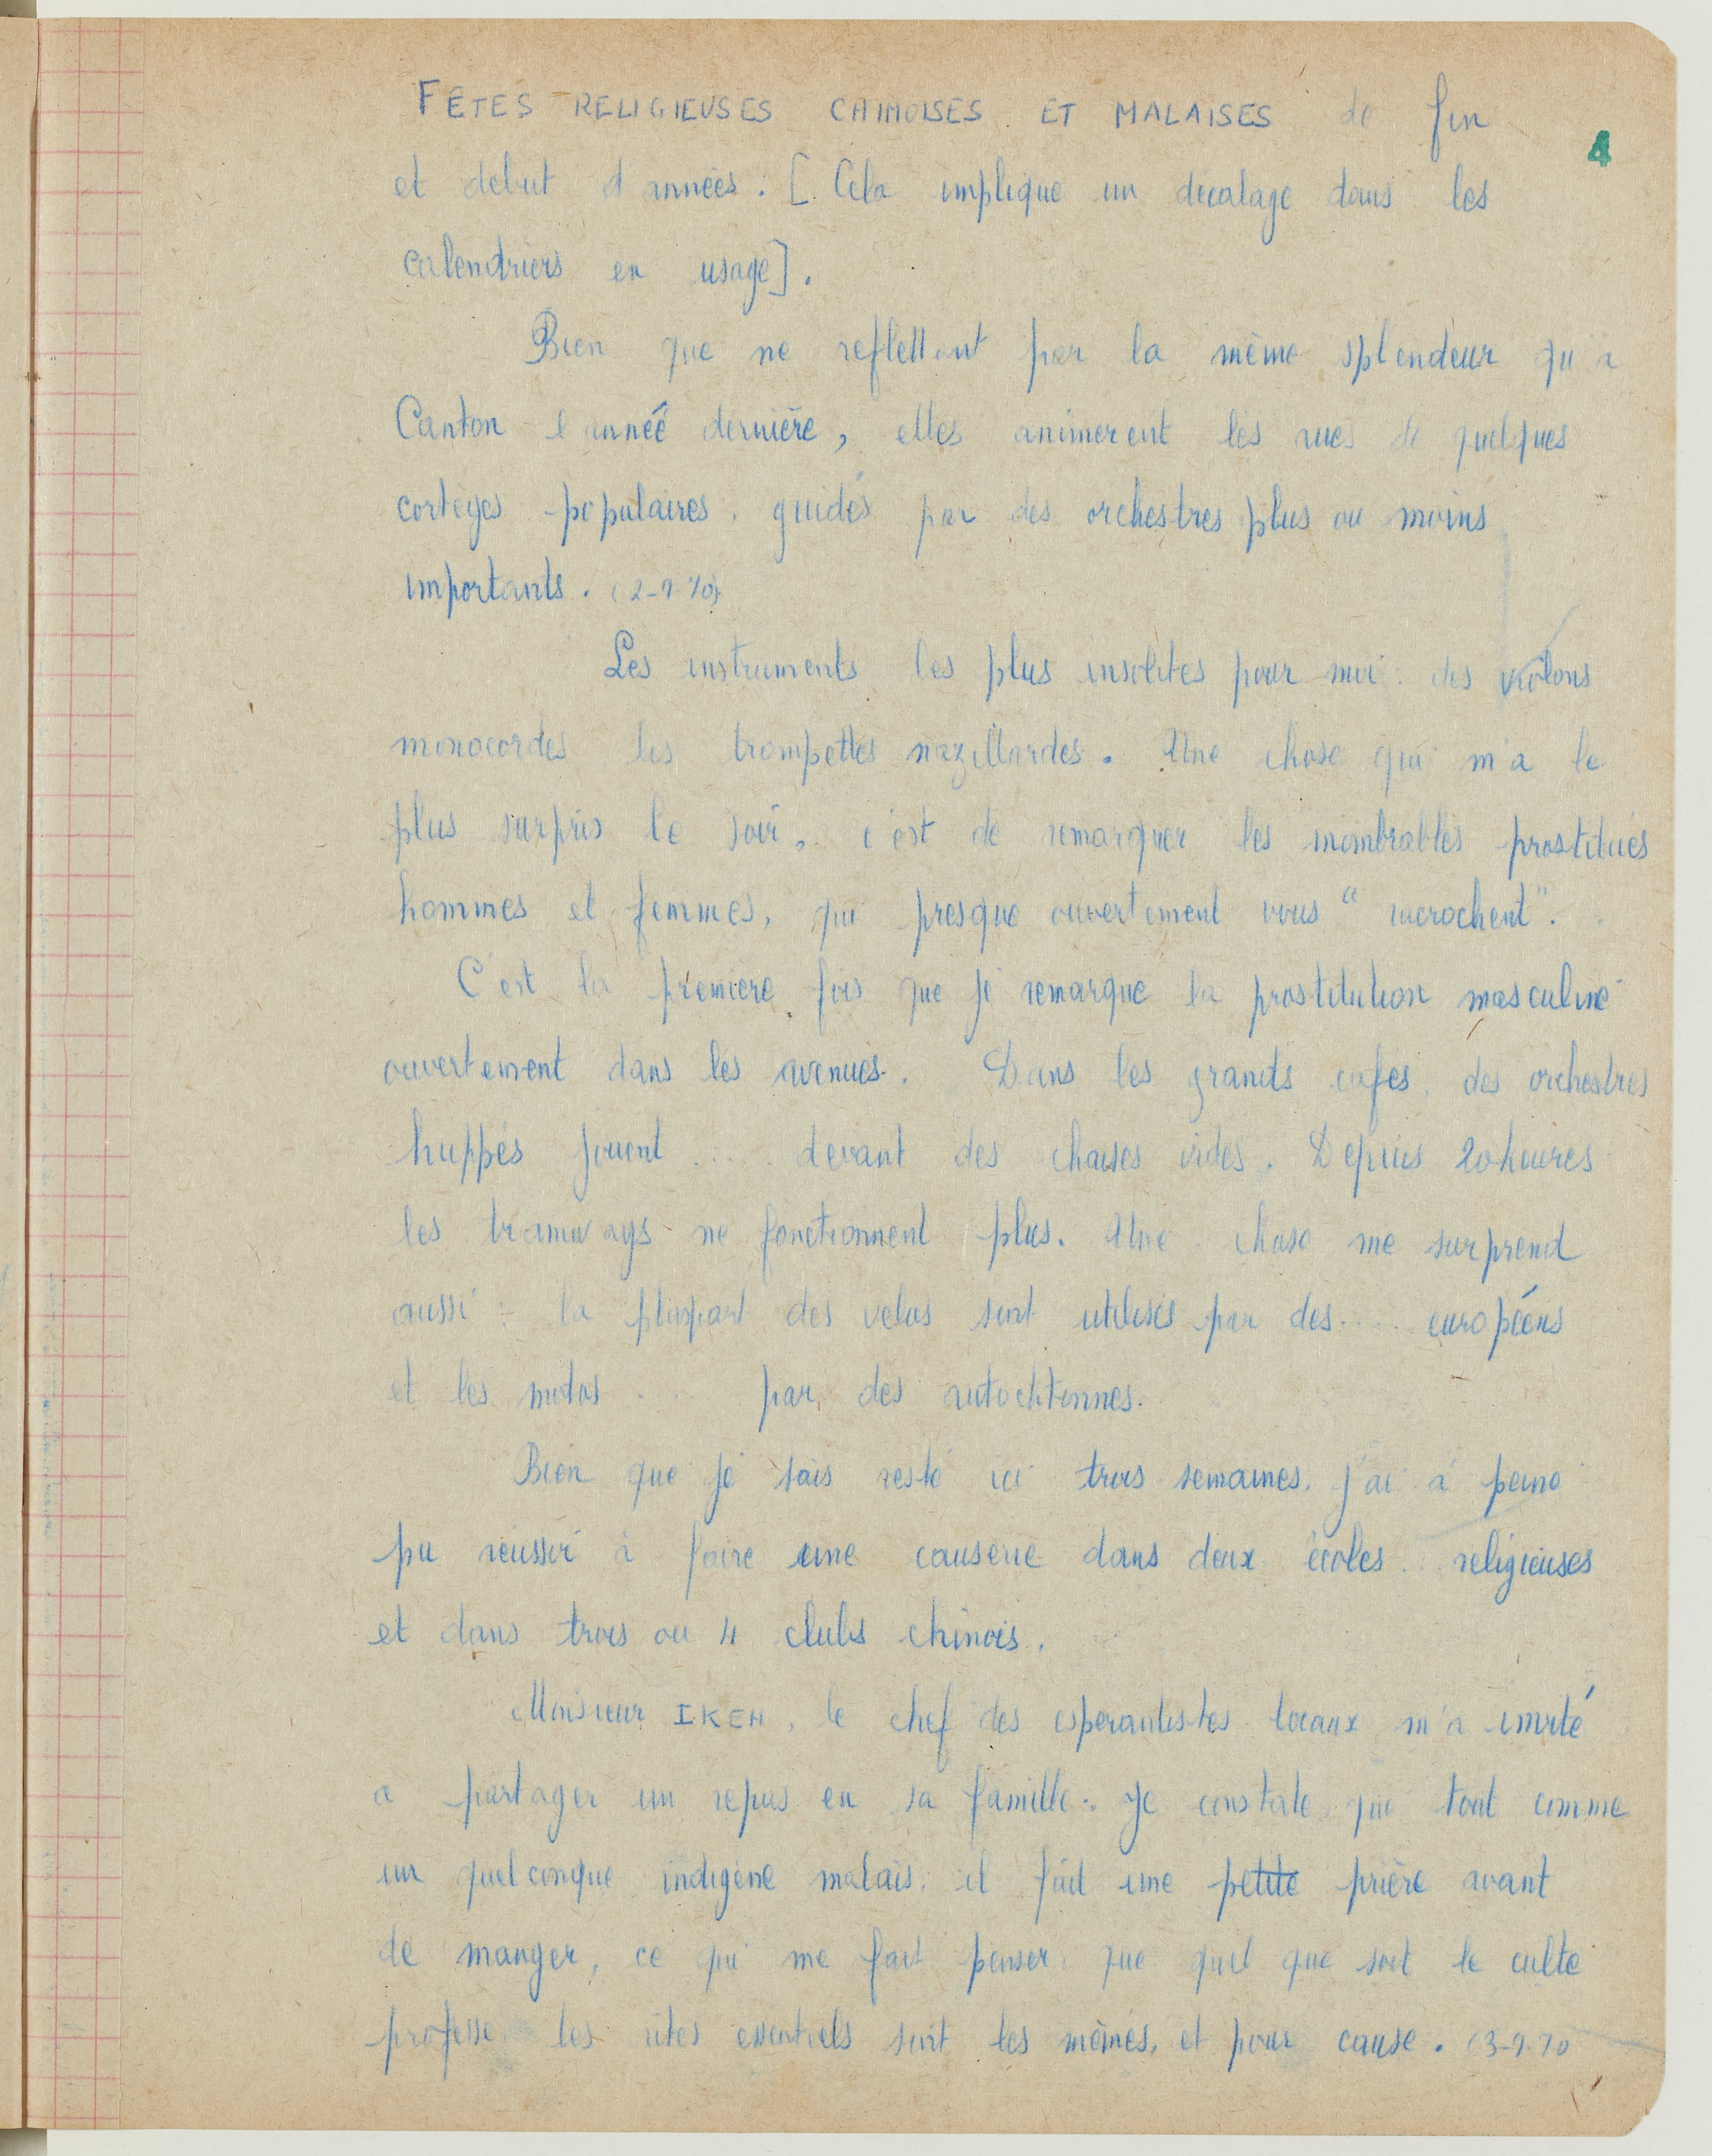 FÊTES RELIGIEUSES CHINOISES ET MALAISES de fin
4
et debut d'années. [. Cela implique un decalage dans les
calendriers en usage].
Bien que ne reflettant par la même splendeur qu'a
Canton l'année dernière, elles animerent les rues de quelques
cortèges populaires, guidés par des orchestres plus ou moins
importants. (2-9-70)
Les instruments les plus insolites pour moi : des violons
monocordes, les trompettes nazillardes. Une chose qui m'a le
plus surpris le soir, c'est de remarquer les inombrables prostitués
hommes et femmes, qui presque ouvertement vous "racrochent".
C'est la première fois que je remarque la prostitution masculine
ouvertement dans les avenues. Dans les grands cafes, des orchestres
huppés jouent .... devant des chaises vides. Depuis 20 heures
les tramways ne fonctionnent plus. Une chose me surprend
aussi : la plupart des velos sont utilisés par des .... européens
et les motos .... par des autochtonnes.
Bien que je sois resté ici trois semaines, j'ai à peine
pu réussir à faire une causerie dans deux écoles .. religieuses
et dans trois ou 4 clubs chinois.
Monsieur IKEH, le chef des esperantistes locaux m'a invité
a partager un repas en sa famille. Je constate que tout comme
un quelconque indigène malais, il fait une petite prière avant
de manger, ce qui me fait penser que quel que soit le culte
professe les rites essentiels sont les mêmes, et pour cause. (3-9-70